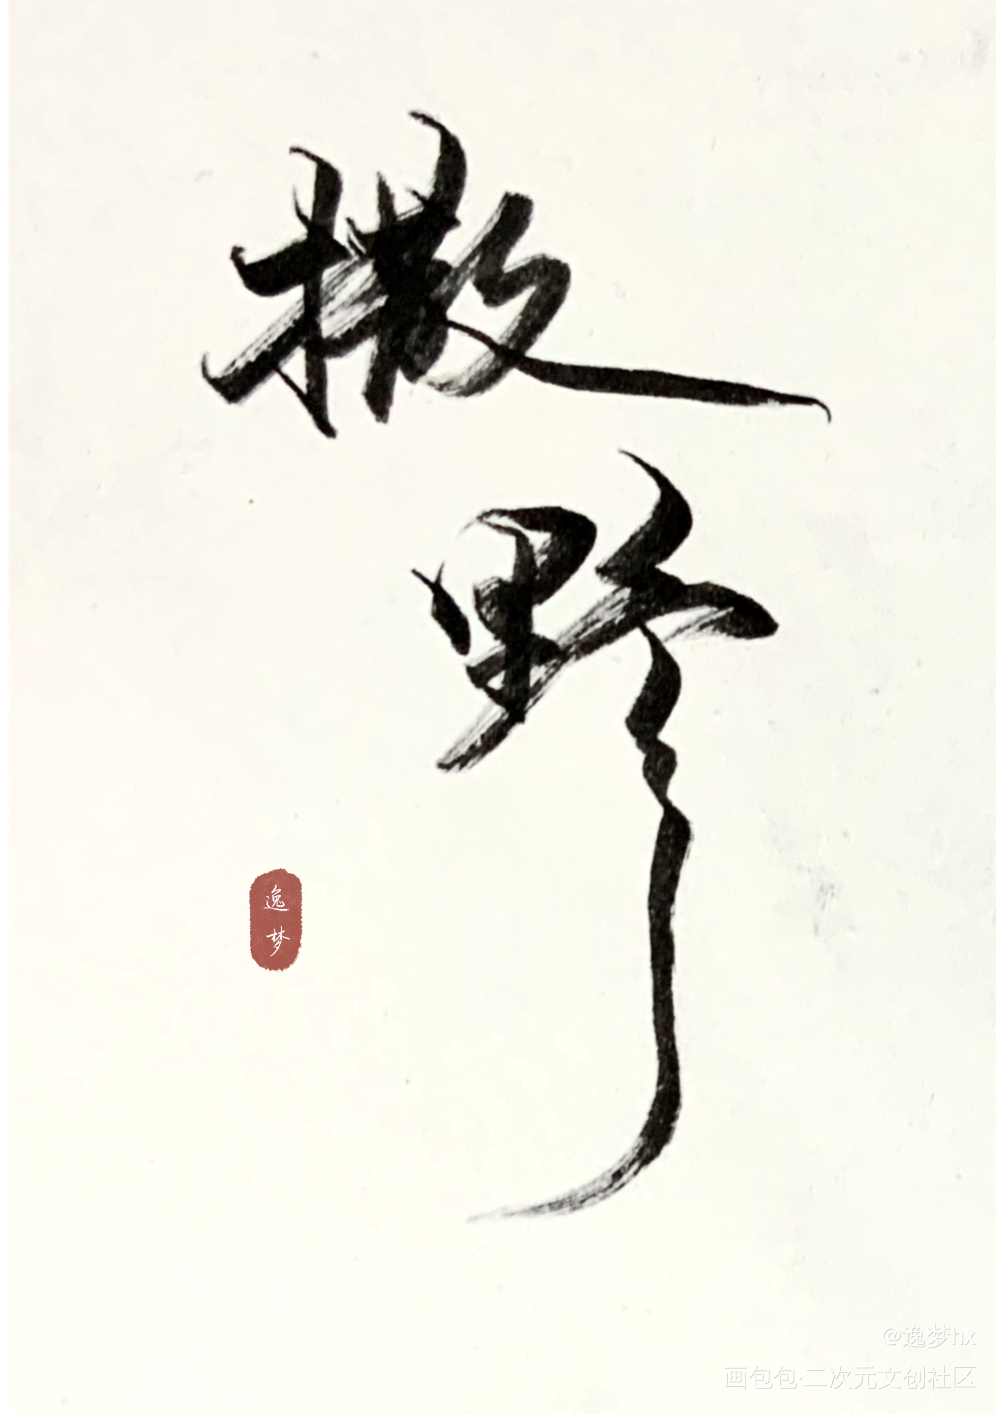 撒
野
逸
梦
@逸梦hx
画包包·二次元文创社区